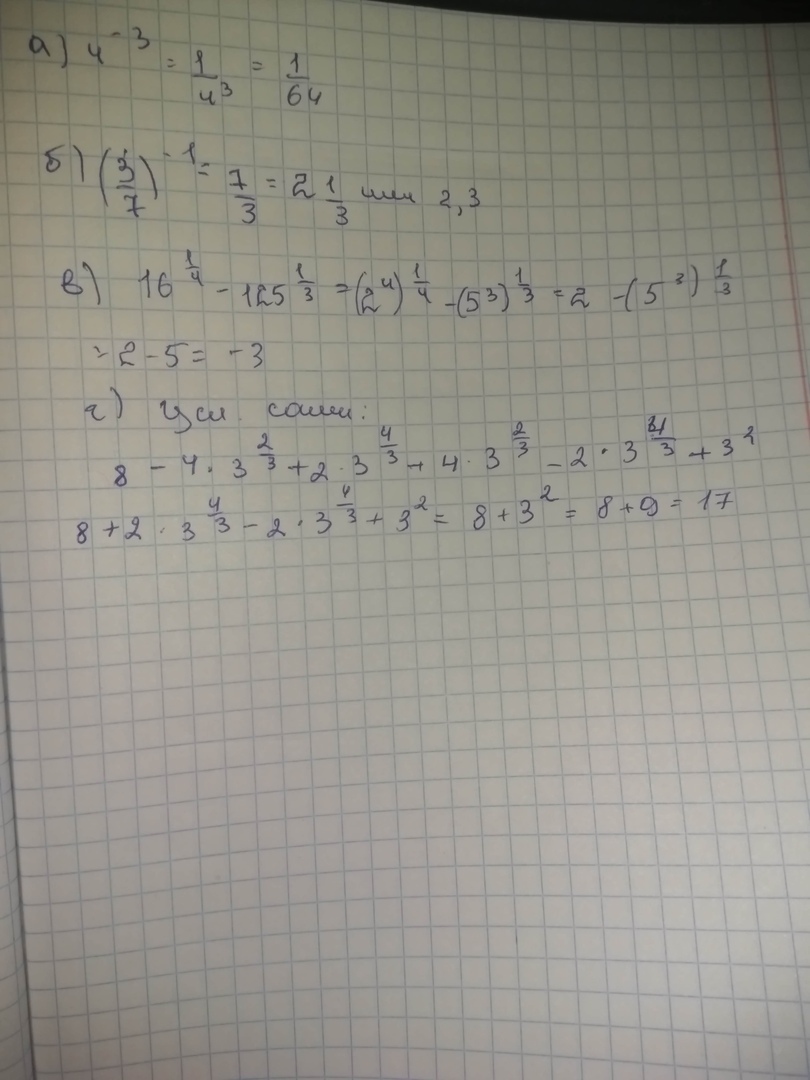 а) 4⁻³ = 1/4³ = 1/64
б) (3/7)⁻¹ = 7/3 = 2 1/3 или 2,3
в) 16^(1/4) - 125^(1/3) = (2⁴)^(1/4) - (5³)^(1/3) = 2 - (5³)^(1/3)
= 2 - 5 = -3
г) Усл. сами:
8 - 4 · 3^(2/3) + 2 · 3^(4/3) + 4 · 3^(2/3) - 2 · 3^(4/3) + 3²
8 + 2 · 3^(4/3) - 2 · 3^(4/3) + 3² = 8 + 3² = 8 + 9 = 17